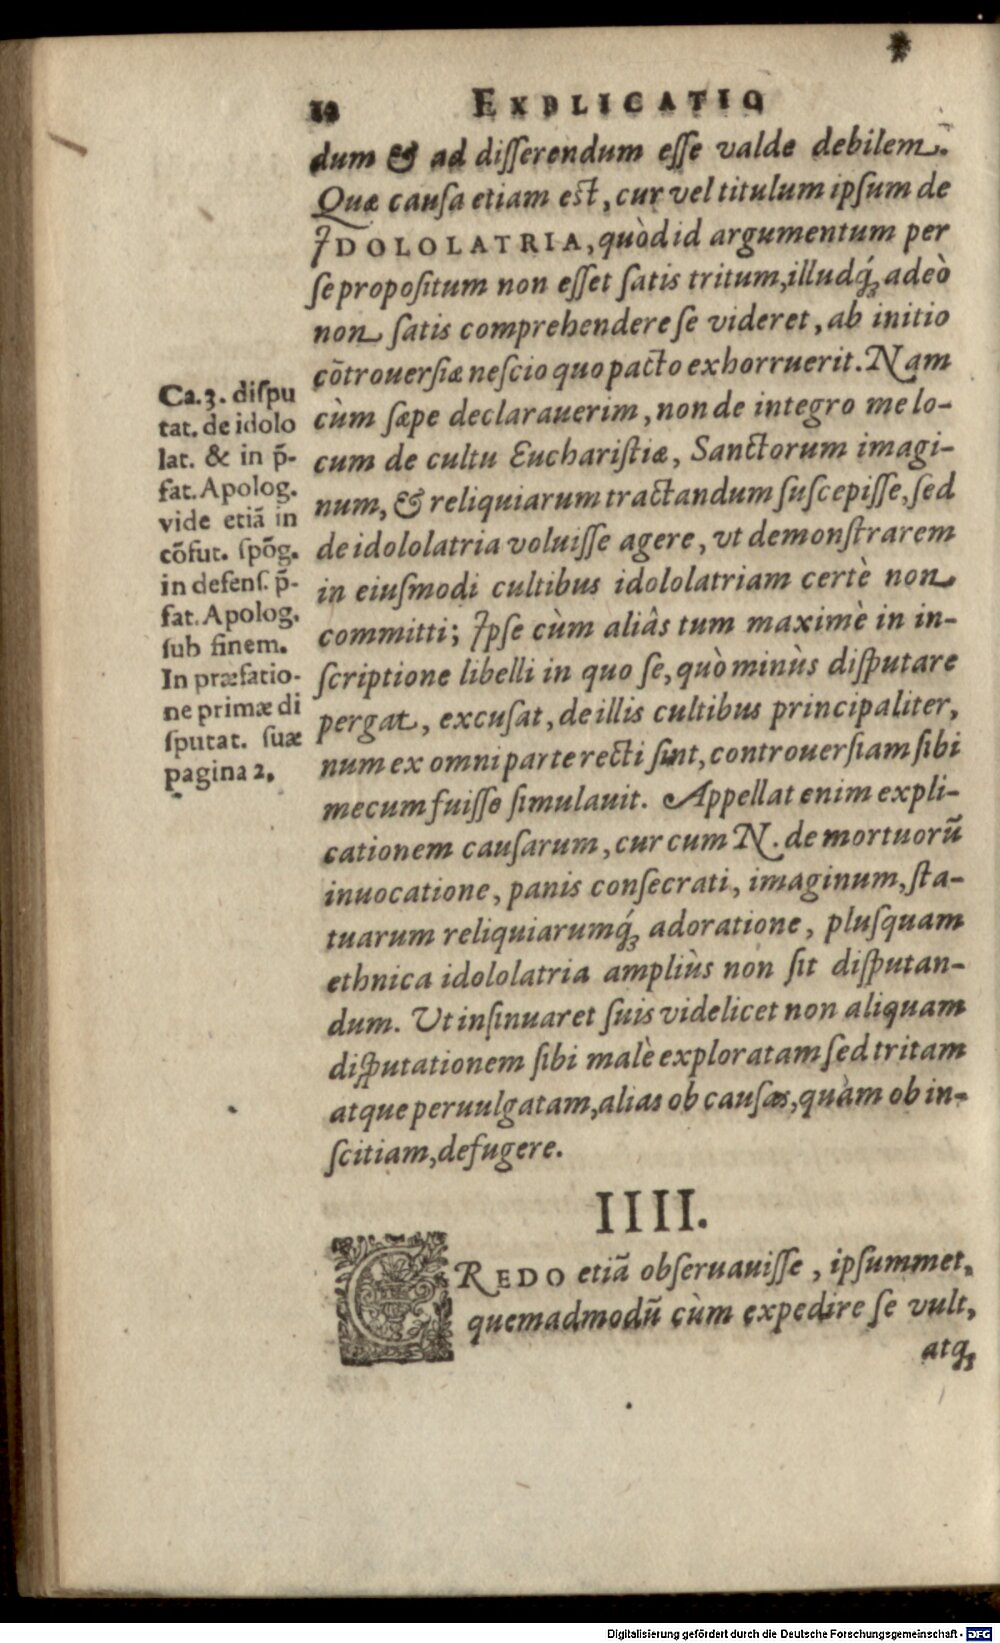 12 EXPLICATIO
dum & ad disserendum esse valde debilem.
Quæ causa etiam est, cur vel titulum ipsum de
IDOLOLATRIA, quòd id argumentum per
se propositum non esset satis tritum, illudq́; adeò
non satis comprehendere se videret, ab initio
cõtrouersiæ nescio quo pacto exhorruerit. Nam
cùm sæpe declarauerim, non de integro me lo-
cum de cultu Eucharistiæ, Sanctorum imagi-
num, & reliquiarum tractandum suscepisse, sed
de idololatria voluisse agere, vt demonstrarem
in eiusmodi cultibus idololatriam certè non
committi; Ipse cùm aliâs tum maximè in in-
scriptione libelli in quo se, quò minùs disputare
pergat, excusat, de illis cultibus principaliter,
num ex omni parte recti sint, controuersiam sibi
mecum fuisse simulauit. Appellat enim expli-
cationem causarum, cur cum N. de mortuorũ
inuocatione, panis consecrati, imaginum, sta-
tuarum reliquiarumq́; adoratione, plusquam
ethnica idololatria ampliùs non sit disputan-
dum. Ut insinuaret suis videlicet non aliquam
disputationem sibi malè exploratam sed tritam
atque peruulgatam, alias ob causas, quàm ob in-
scitiam, defugere.
Ca. 3. dispu
tat. de idolo
lat. & in p̃-
fat. Apolog.
vide etiã in
cõfut. spõg.
in defens. p̃-
fat. Apolog.
sub finem.
In præfatio-
ne primæ di
sputat. suæ
pagina 2.
IIII.
CREDO etiã obseruauisse, ipsummet,
quemadmodũ cùm expedire se vult,
atq;
Digitalisierung gefördert durch die Deutsche Forschungsgemeinschaft - DFG